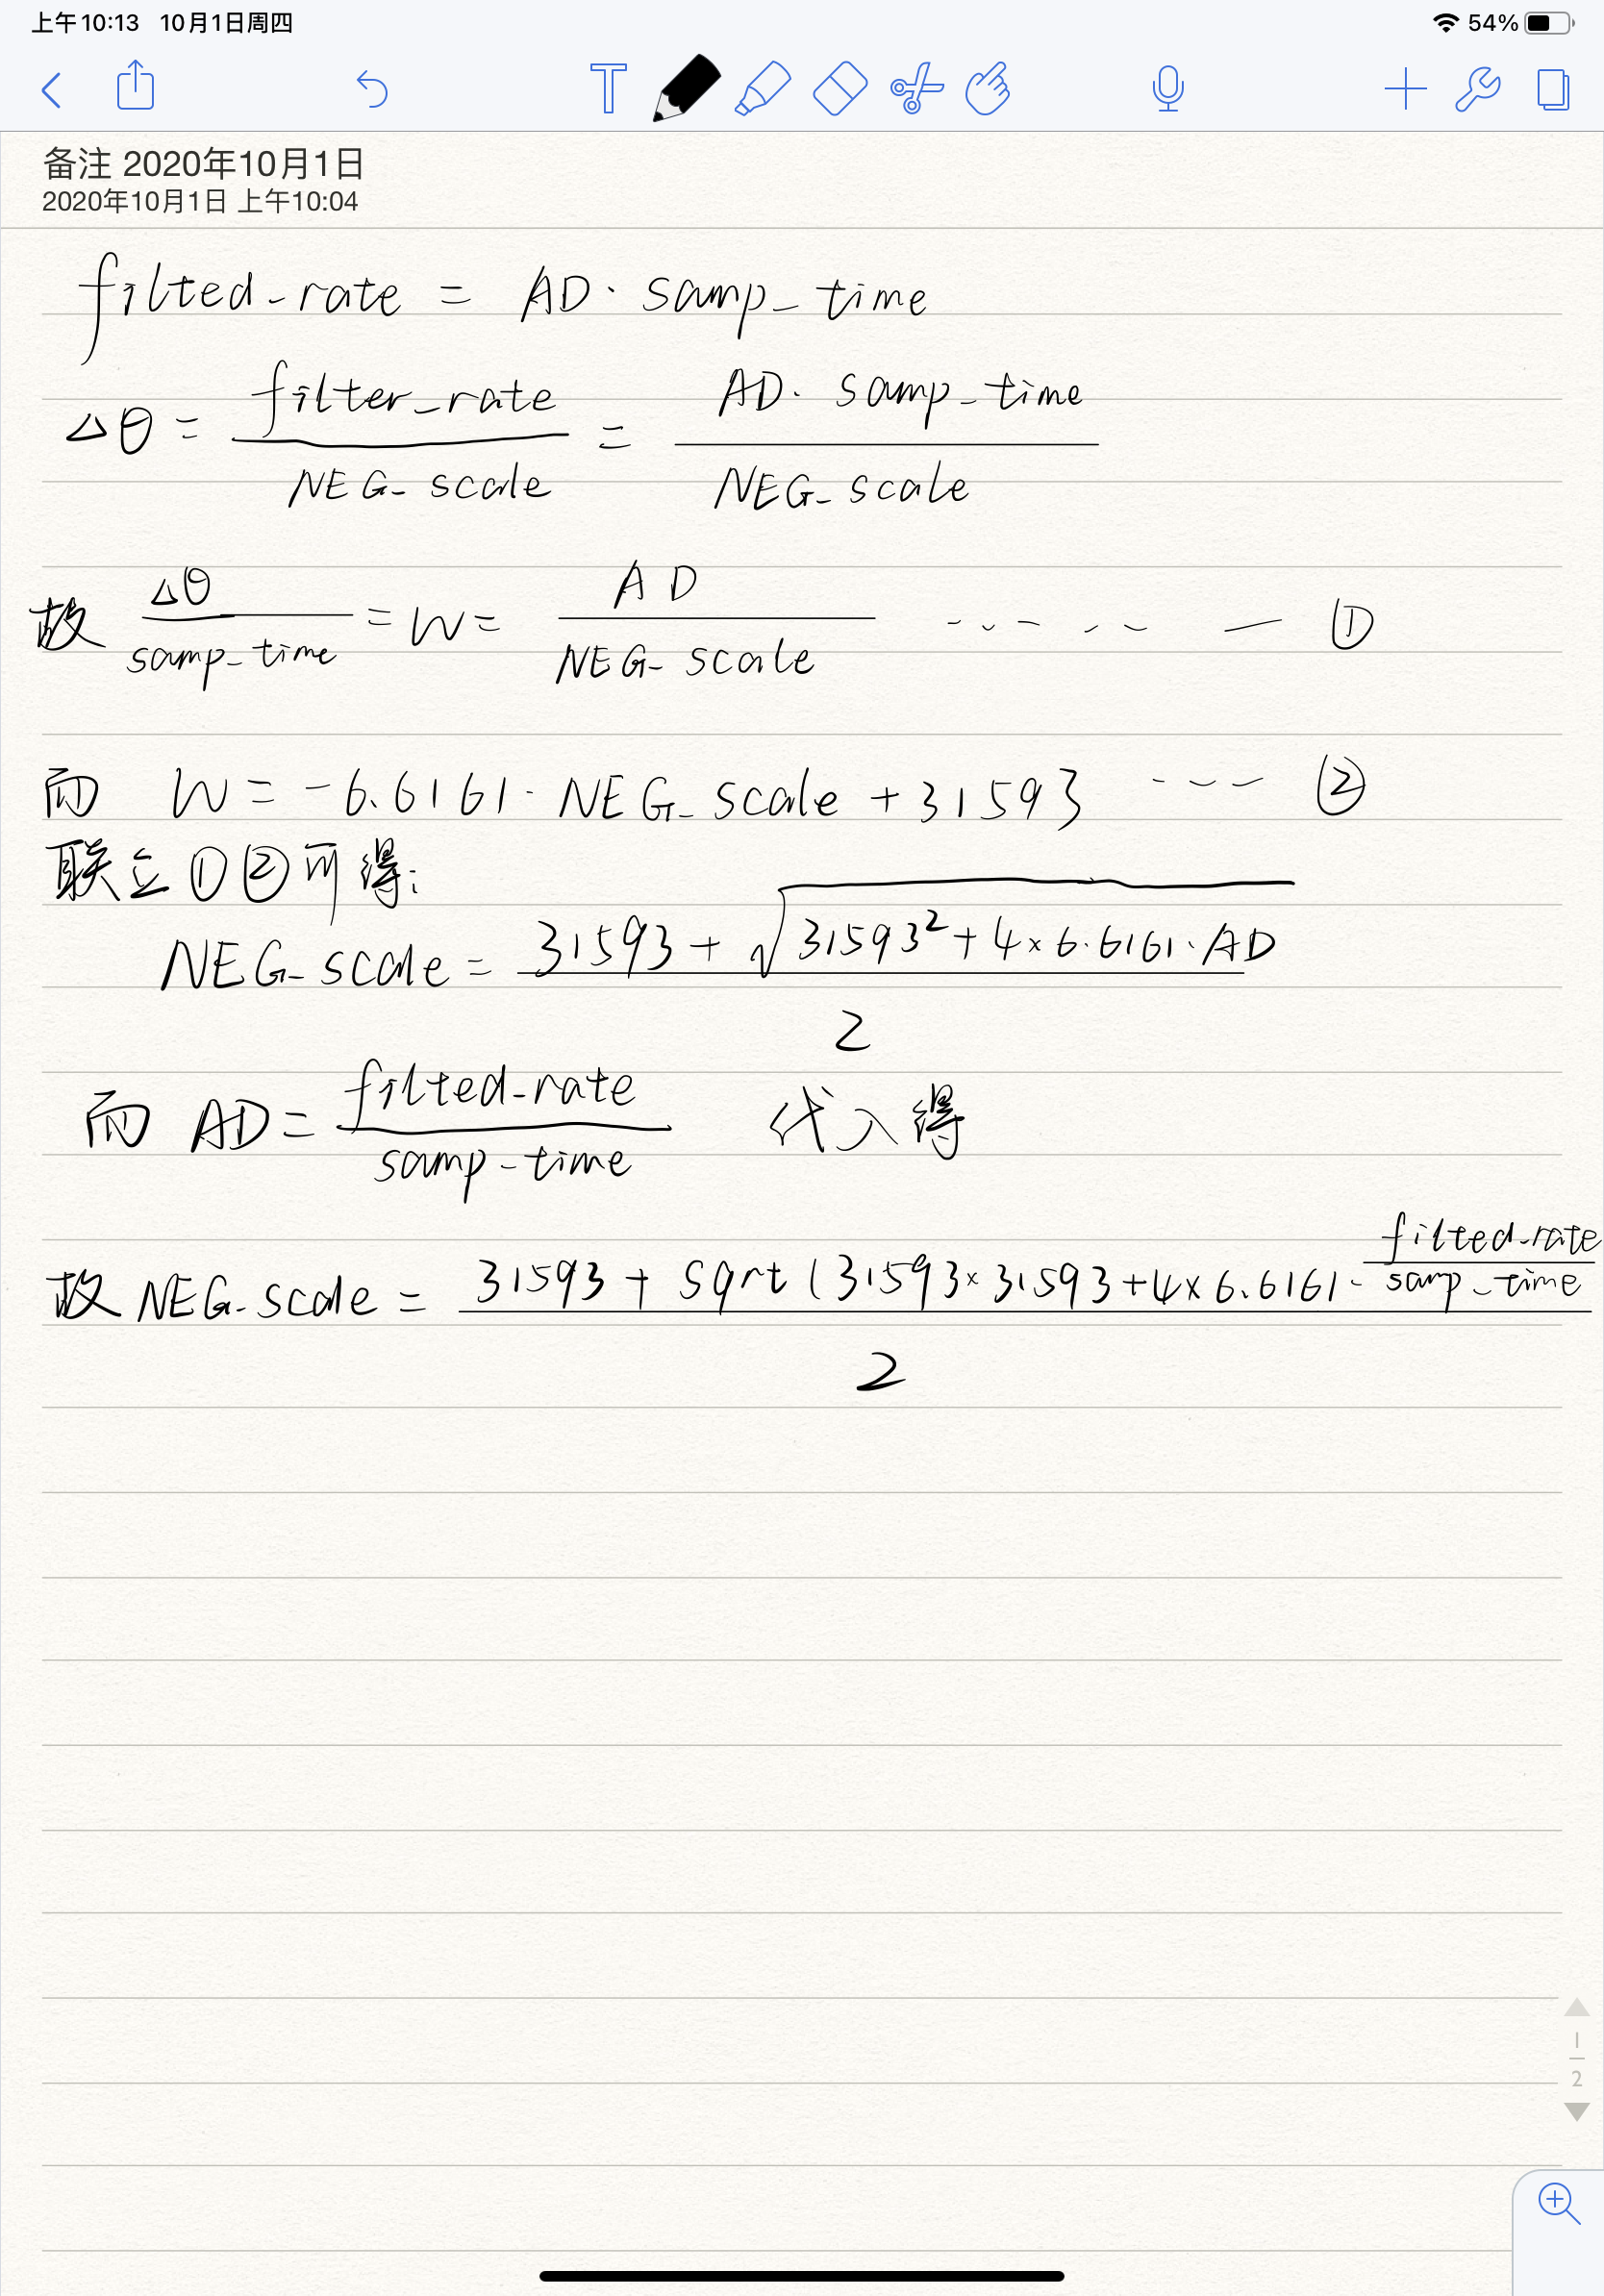 上午10:13 10月1日周四 54%
备注 2020年10月1日
2020年10月1日 上午10:04
filted_rate = AD · samp_time
Δθ = filter_rate / NEG_scale = AD · samp_time / NEG_scale
故 Δθ / samp_time = W = AD / NEG_scale ------ — ①
而 W = -6.6161 · NEG_scale + 31593 --- ②
联立①②可得:
NEG_scale = 31593 + √31593² + 4 × 6.6161 · AD / 2
而 AD = filted_rate / samp_time 代入得
故 NEG_scale = 31593 + sqrt (31593 × 31593 + 4 × 6.6161 · filted_rate / samp_time / 2
1
2